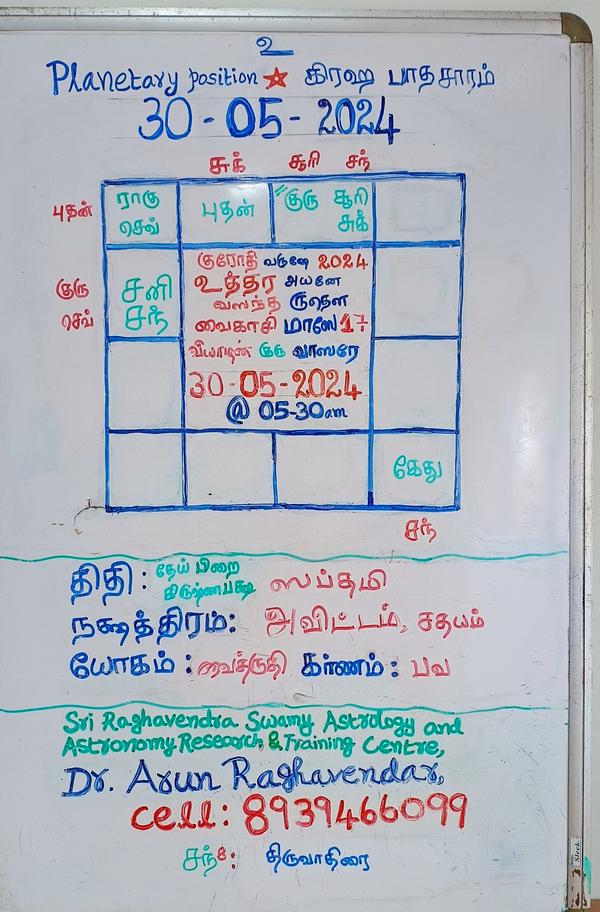 உ
Planetary position கிரஹ பாதசாரம்
30-05-2024
சுக் சூரி சந்
புதன் ராகு புதன் குரு சூரி
செவ் சுக்
குரோதி வருஷே 2024
குரு சனி உத்தர அயனே
செவ் சந் வஸந்த ருதௌ
வைகாசி மாஸே 17
வியாழன் குரு வாஸரே
30-05-2024
@ 05-30am
கேது
சந்
திதி: தேய் பிறை
கிருஷ்ணபக்ஷ ஸப்தமி
நக்ஷத்திரம்: அவிட்டம், சதயம்
யோகம்: வைத்ருதி கர்ணம்: பவ
Sri Raghavendra Swamy Astrology and
Astronomy Research & Training Centre,
Dr. Arun Raghavendar,
cell: 8939466099
சந்8: திருவாதிரை